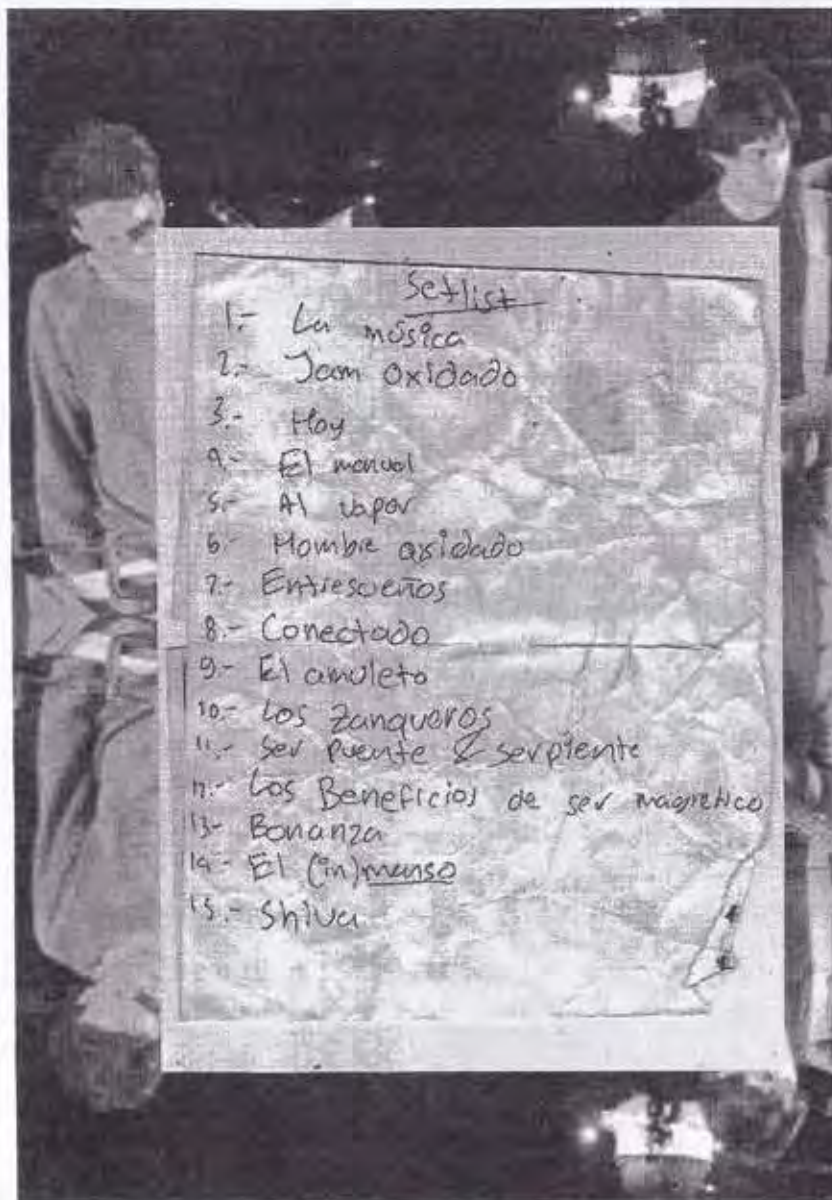 Setlist
1.- La música
2.- Jam oxidado
3.- Hoy
4.- El manual
5.- Al vapor
6.- Hombre oxidado
7.- Entresueños
8.- Conectado
9.- El amuleto
10.- Los Zanqueros
11.- Ser puente & serpiente
12.- Los Beneficios de ser magnético
13.- Bonanza
14.- El (in)manso
15.- Shiva